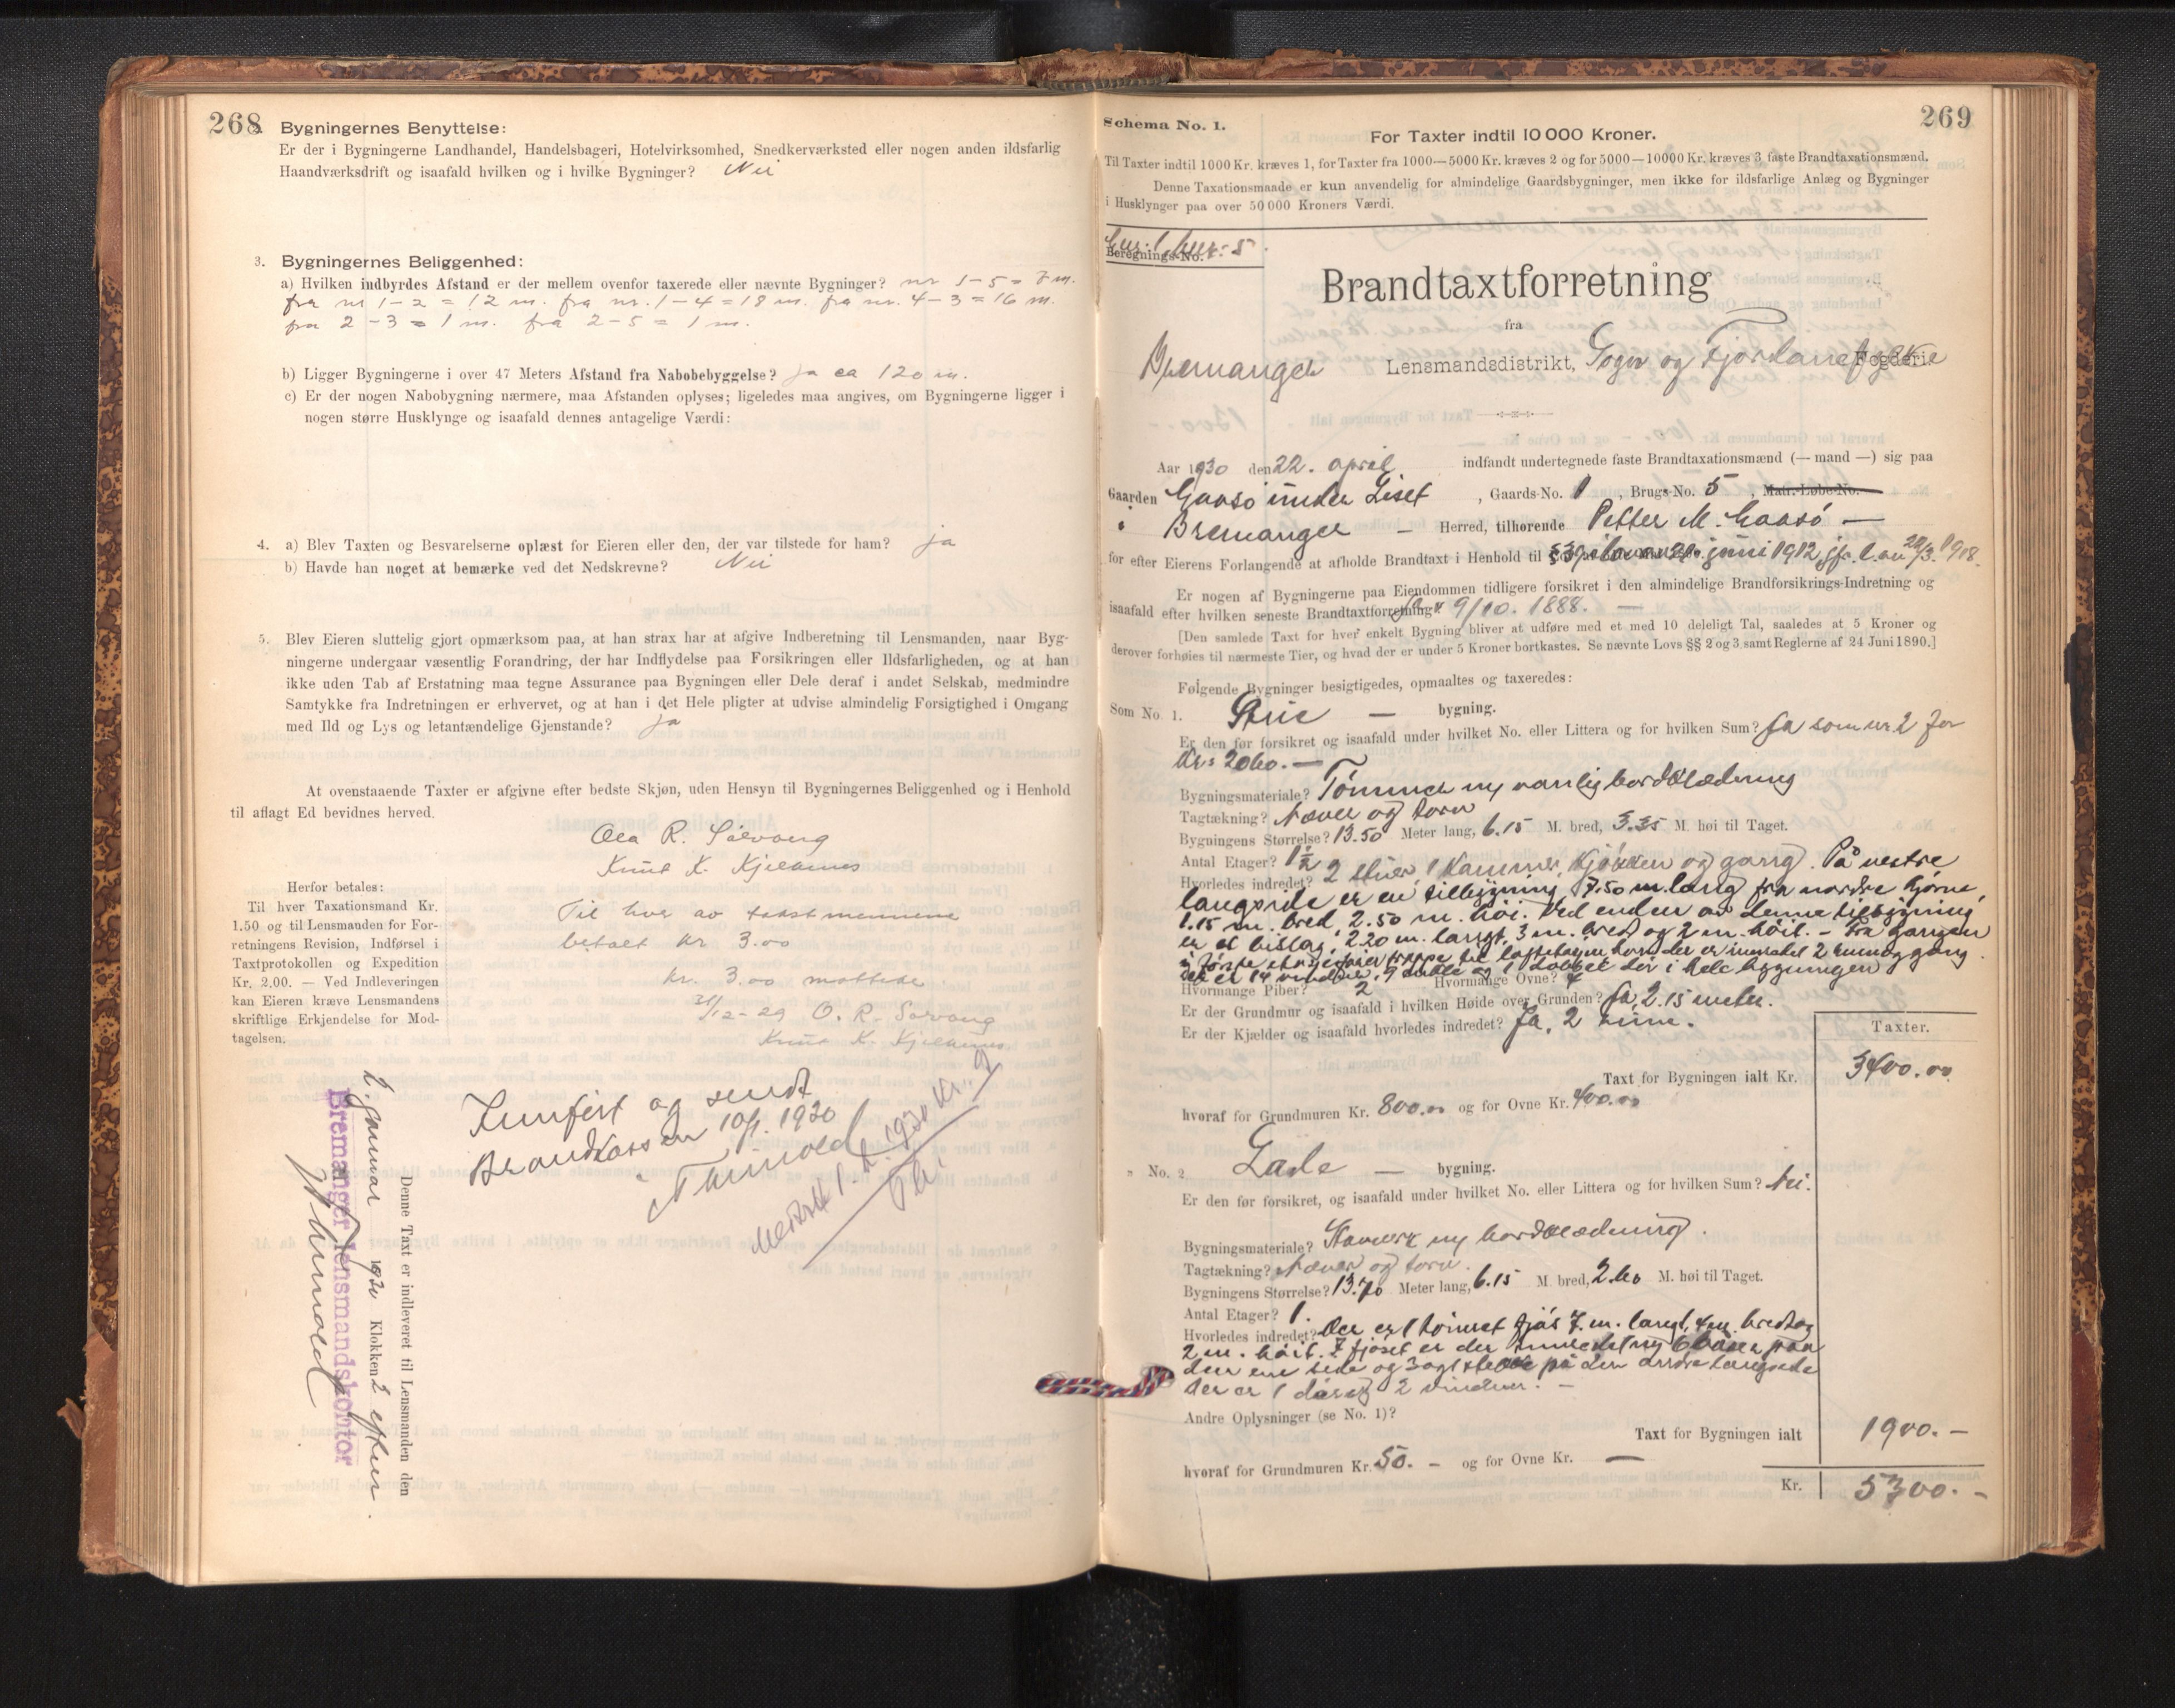 268
2. Bygningernes Benyttelse:
Er der i Bygningerne Landhandel, Handelsbageri, Hotelvirksomhed, Snedkerværksted eller nogen anden ildsfarlig
Haandværksdrift og isaafald hvilken og i hvilke Bygninger? Nei
3. Bygningernes Beliggenhed:
a) Hvilken indbyrdes Afstand er der mellem ovenfor taxerede eller nævnte Bygninger? nr 1-5 = 7 m.
fra nr 1-2 = 12 m. fra nr. 1-4 = 18 m. fra nr. 4-3 = 16 m.
fra 2-3 = 1 m. fra 2-5 = 1 m.
b) Ligger Bygningerne i over 47 Meters Afstand fra Nabobebyggelse? ja ca 120 m.
c) Er der nogen Nabobygning nærmere, maa Afstanden oplyses; ligeledes maa angives, om Bygningerne ligger i
nogen større Husklynge og isaafald dennes antagelige Værdi:
4. a) Blev Taxten og Besvarelserne oplæst for Eieren eller den, der var tilstede for ham? ja
b) Havde han noget at bemærke ved det Nedskrevne? Nei
5. Blev Eieren sluttelig gjort opmærksom paa, at han strax har at afgive Indberetning til Lensmanden, naar Byg-
ningerne undergaar væsentlig Forandring, der har Indflydelse paa Forsikringen eller Ildsfarligheden, og at han
ikke uden Tab af Erstatning maa tegne Assurance paa Bygningen eller Dele deraf i andet Selskab, medmindre
Samtykke fra Indretningen er erhvervet, og at han i det Hele pligter at udvise almindelig Forsigtighed i Omgang
med Ild og Lys og letantændelige Gjenstande? ja
At ovenstaaende Taxter er afgivne efter bedste Skjøn, uden Hensyn til Bygningernes Beliggenhed og i Henhold
til aflagt Ed bevidnes herved.
Ola R.
Knut K. Kjelanes
Herfor betales:
Til hver Taxationsmand Kr.
1.50 og til Lensmanden for For-
retningens Revision, Indførsel i
Taxtprotokollen og Expedition
Kr. 2.00. — Ved Indleveringen
kan Eieren kræve Lensmandens
skriftlige Erkjendelse for Mod-
tagelsen.
Til hver av takstmennene
betalt kr 3.00
kr. 3.00 mottatt
31/12-29 O. R.
Knut K. Kjelanes
Innført og sendt
Brandkassen 10/1. 1930
Denne Taxt er indleveret til Lensmanden den
2. januar 1930 Klokken 2 efter
Bremanger lensmandskontor
269
Schema No. 1.
For Taxter indtil 10 000 Kroner.
Til Taxter indtil 1000 Kr. kræves 1, for Taxter fra 1000—5000 Kr. kræves 2 og for 5000—10000 Kr. kræves 3 faste Brandtaxationsmænd.
Denne Taxationsmaade er kun anvendelig for almindelige Gaardsbygninger, men ikke for ildsfarlige Anlæg og Bygninger
i Husklynger paa over 50 000 Kroners Værdi.
Gnr. 1, bnr. 5.
Beregnings-No.
Brandtaxtforretning
fra
Bremanger Lensmandsdistrikt, Sogn og Fjordane fylke Fogderie
Aar 1930 den 22. april indfandt undertegnede faste Brandtaxationsmænd (— mand —) sig paa
Gaarden Gaasø under Liset, Gaards-No. 1, Brugs-No. 5, Matr.-Løbe-No.
i Bremanger — Herred, tilhørende Petter M. Gaasø —
for efter Eierens Forlangende at afholde Brandtaxt i Henhold til juni 1912, jfr. l. av 22/3. 1918.
Er nogen af Bygningerne paa Eiendommen tidligere forsikret i den almindelige Brandforsikrings-Indretning og
isaafald efter hvilken seneste Brandtaxtforretning? 9/10. 1888. —
[Den samlede Taxt for hver enkelt Bygning bliver at udføre med et med 10 deleligt Tal, saaledes at 5 Kroner og
derover forhøies til nærmeste Tier, og hvad der er under 5 Kroner bortkastes. Se nævnte Lovs §§ 2 og 3 samt Reglerne af 24 Juni 1890.]
Følgende Bygninger besigtigedes, opmaaltes og taxeredes:
Som No 1. Stue — bygning.
Er den før forsikret og isaafald under hvilket No. eller Littera og for hvilken Sum? Ja som nr 2 for
Kr. 2060. —
Bygningsmateriale? Tømmer ny vanlig bordklædning
Tagtækning? Næver og torv
Bygningens Størrelse? 13.50 Meter lang, 6.15 M. bred, 3.35 M. høi til Taget.
Antal Etager? 1½
Hvorledes indredet? 2 stuer, 1 Kammer, Kjøkken og gang. På vestre
langside er en tilbygning 7.50 m. lang fra nordre hjørne,
1.15 m. bred, 2.50 m. høi. Ved enden av denne tilbygning
er et bislag, 2.20 m. langt, 3 m. bred og 2 m. høit. - Fra gangen
i første etasje fører trappe til loftetagen hvor der er innredet 2 rum og gang.
Der er 14 vinduer, 9 dører og 1 dobbel dør i hele bygningen
Hvormange Piber? 2 Hvormange Ovne? 4
Er der Grundmur og isaafald i hvilken Høide over Grunden? Ja, 2.15 meter.
Er der Kjælder og isaafald hvorledes indredet? Ja, 2 rum.
Taxter.
Taxt for Bygningen ialt Kr. 3400.00
hvoraf for Grundmuren Kr. 800.00 og for Ovne Kr. 400.00
" No. 2 Lade — bygning.
Er den før forsikret, og isaafald under hvilket No. eller Littera og for hvilken Sum? Nei.
Bygningsmateriale? Stavverk ny bordklædning.
Tagtækning? Næver og torv.
Bygningens Størrelse? 13.70 Meter lang, 6.15 M. bred, 2.60 M. høi til Taget.
Antal Etager? 1.
Hvorledes indredet? Der er 1 tømret fjøs 7. m. langt, 4 m. bredt og
2 m. høit. I fjøset er der innredet ny 6 båser paa
den ene side og 3 på den andre langside
der er 1 dør og 2 vinduer. —
Andre Oplysninger (se No. 1)?
Taxt for Bygningen ialt 1900. —
hvoraf for Grundmuren Kr. 50. — og for Ovne Kr. —
Kr. 5300. —